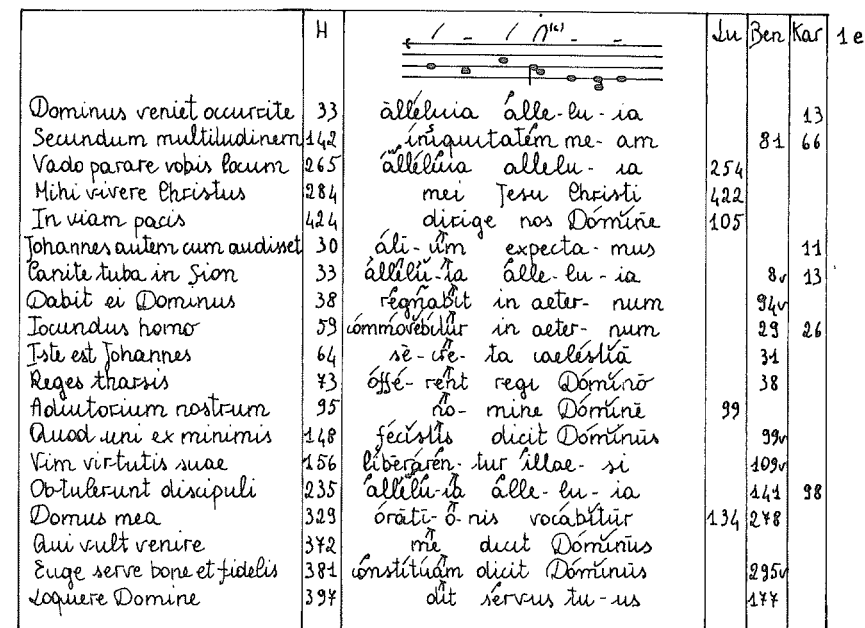 H Lu Ben Kar 1e
Dominus veniet occurrite 33 alleluia alle-lu-ia 13
Secundum multitudinem 142 iniquitatem me-am 81 66
Vado parare vobis locum 265 alleluia allelu-ia 254
Mihi vivere Christus 284 mei Jesu Christi 422
In viam pacis 424 dirige nos Domine 105
Johannes autem cum audisset 30 ali-um expecta-mus 11
Canite tuba in Sion 33 allelu-ia alle-lu-ia 8v 13
Dabit ei Dominus 38 regnabit in aeter-num 94v
Iocundus homo 59 commovebitur in aeter-num 29 26
Iste est Johannes 64 se-cre-ta caelestia 31
Reges tharsis 73 offe-rent regi Domino 38
Adiutorium nostrum 95 no-mine Domine 99
Quod uni ex minimis 148 fecistis dicit Dominus 99v
Vim virtutis suae 156 liberaren-tur illae-si 109v
Obtulerunt discipuli 235 allelu-ia alle-lu-ia 141 98
Domus mea 329 orati-o-nis vocabitur 134 278
Qui vult venire 372 me dicit Dominus
Euge serve bone et fidelis 381 constituam dicit Dominus 295v
Loquere Domine 397 dit servus tu-us 177